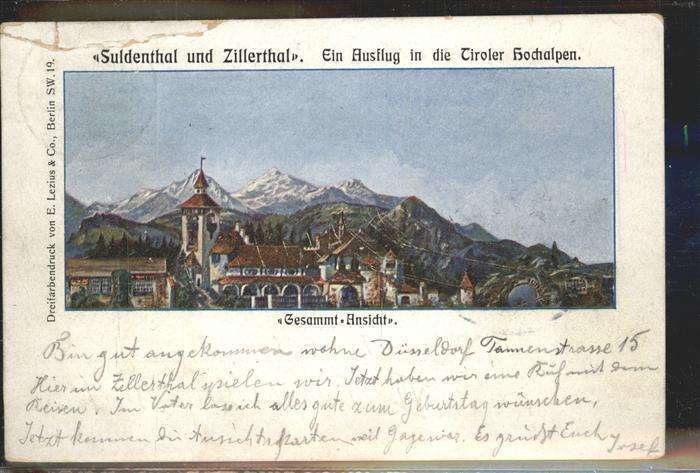 «Suldenthal und Zillerthal». Ein Ausflug in die Tiroler Hochalpen.
Dreifarbendruck von E. Lezius & Co., Berlin SW. 19.
«Gesammt-Ansicht».
Bin gut angekommen wohne Düsseldorf Tannenstrasse 15
Hier im Zillerthal spielen wir. Jetzt haben wir eine Ruh mit dem
Reisen. Im Vater lass ich alles gute zum Geburtstag wünschen,
Jetzt kommen die Ansichtskarten weil Gage war. Es grüßt Euch Josef